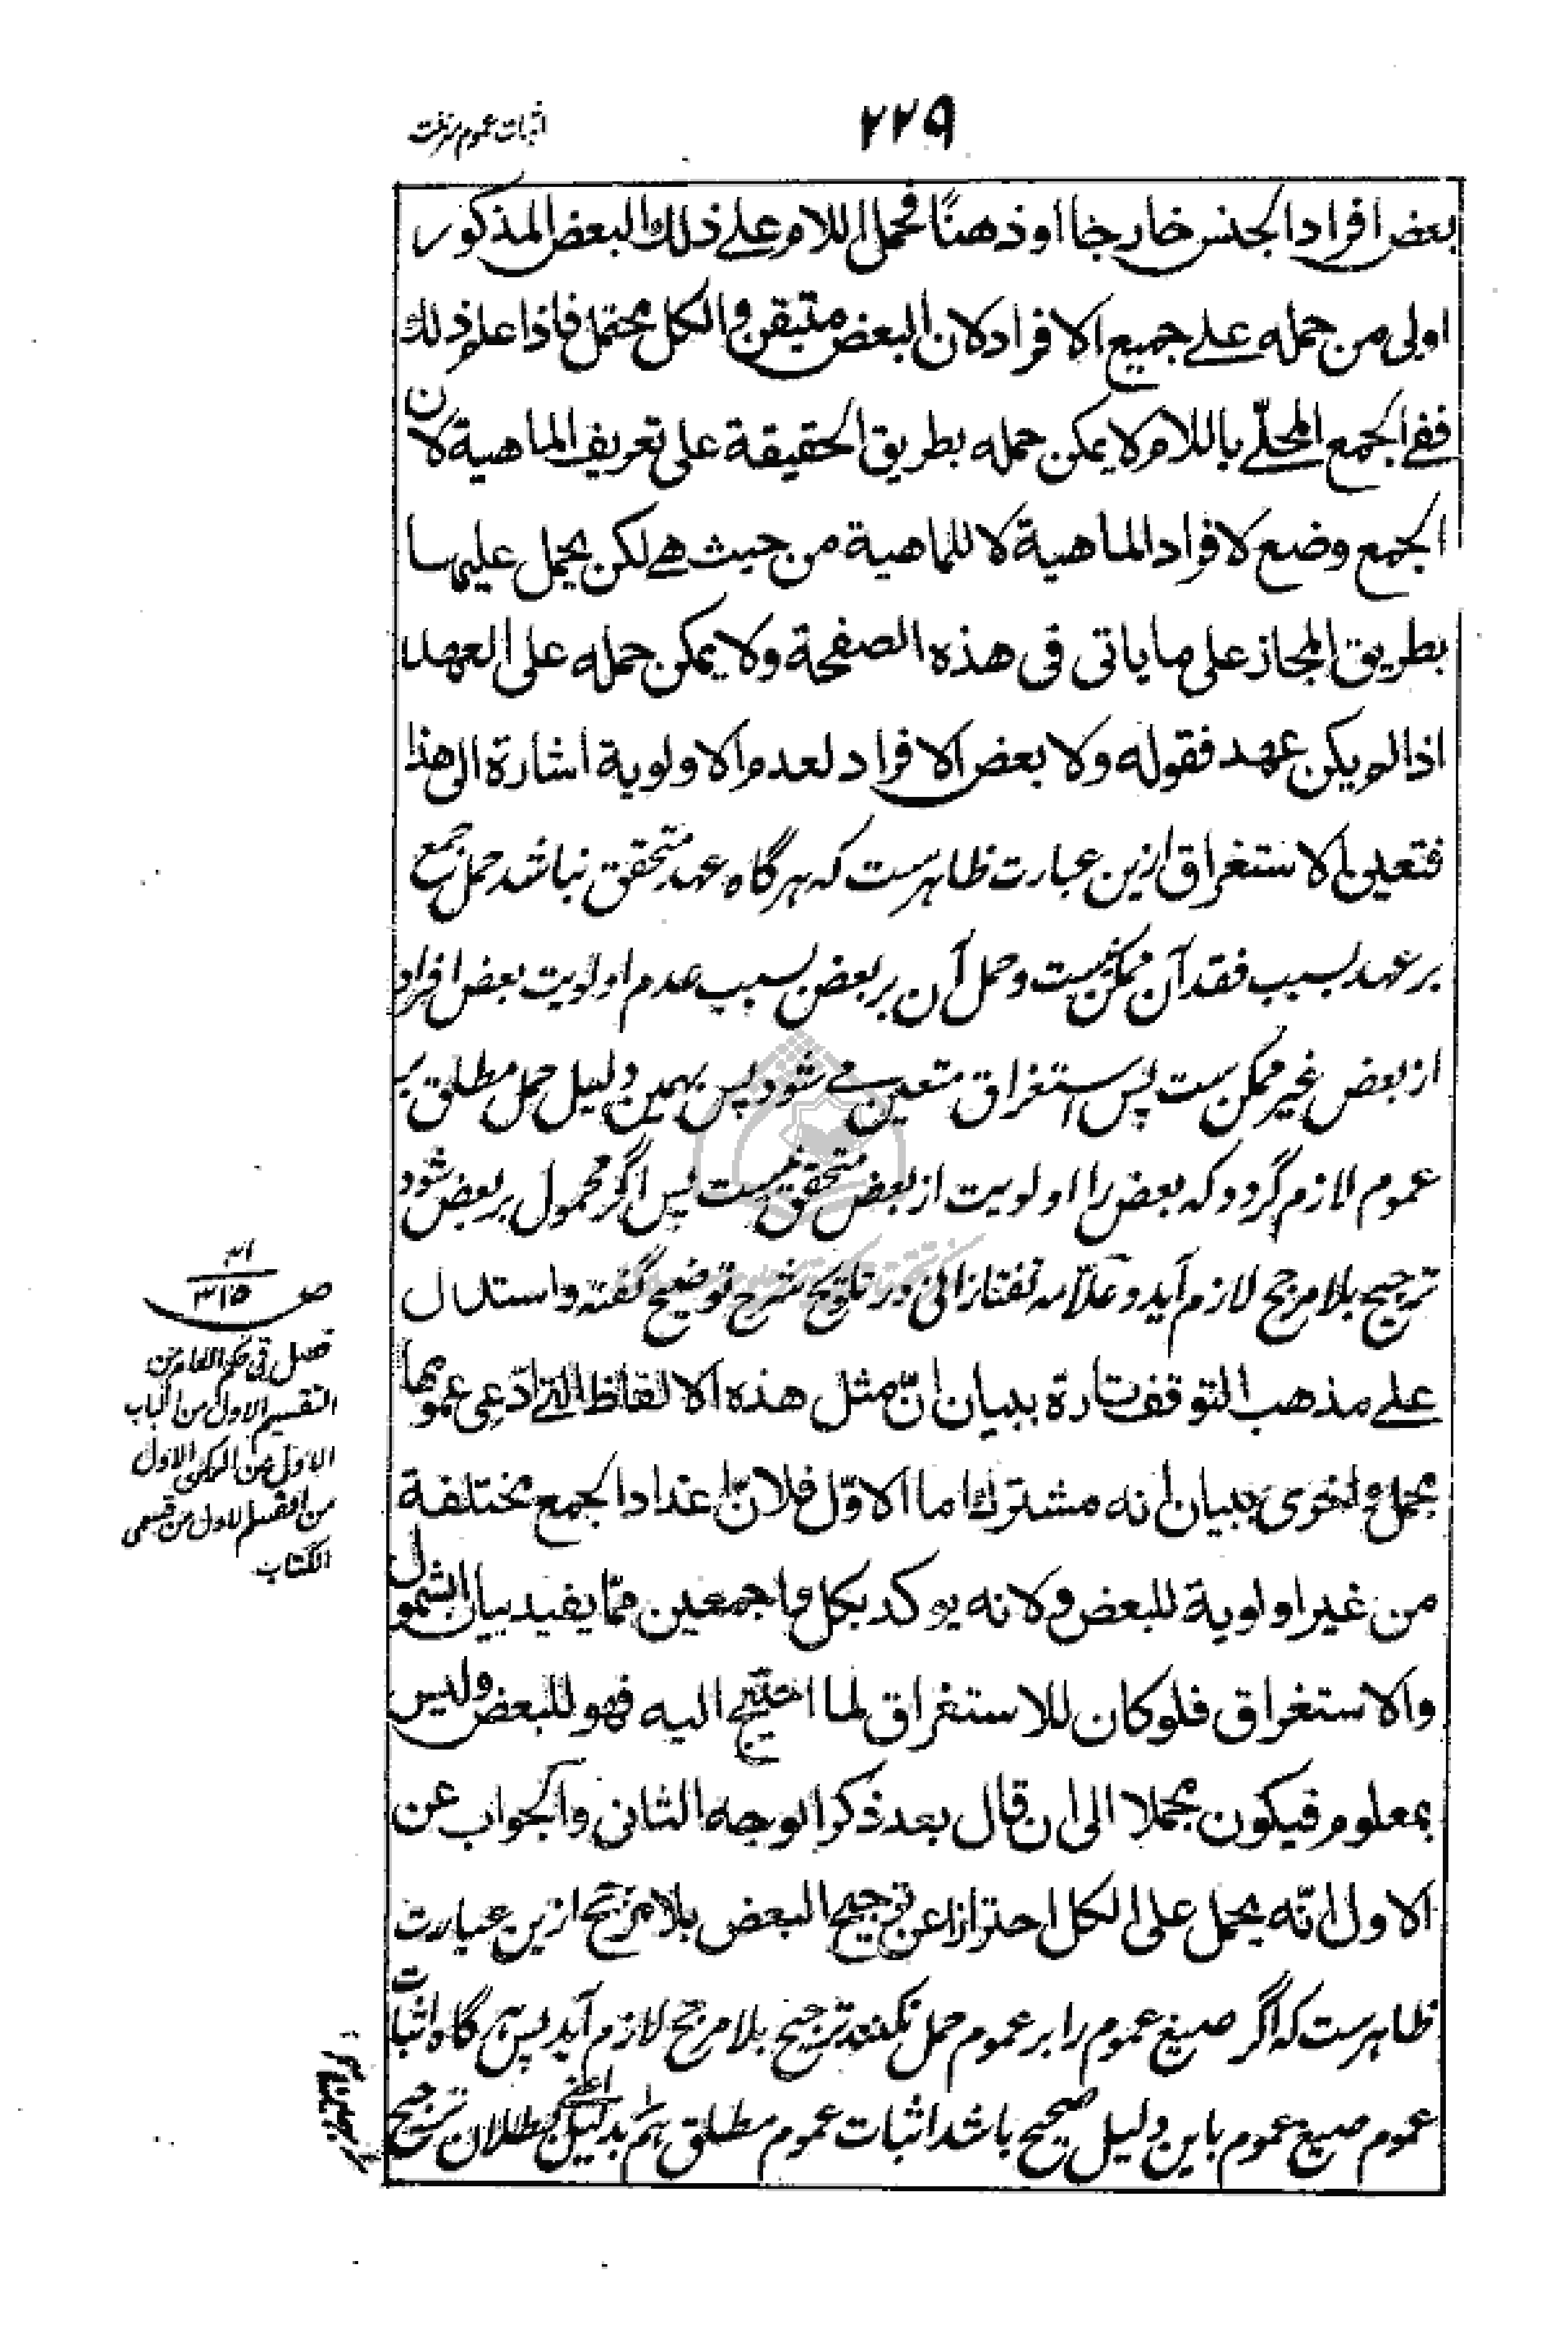 ۲۲۹
اثبات عموم منزلت
بعض افراد الجنس خارجا او ذهنًا فحمل اللام علے ذلك البعض المذكور
اولى من حمله علے جميع الافراد لان البعض متيقن والكل محتمل فاذا علم ذلك
ففے الجمع المحلّے باللام لا يمكن حمله بطريق الحقيقة على تعريف الماهية لان
الجمع وضع لافراد الماهية لا للماهية من حيث هے لكن يحمل عليها
بطريق المجاز على ما ياتى فى هذه الصفحة ولا يمكن حمله على العهد
اذا لم يكن عهد فقوله ولا بعض الافراد لعدم الاولوية اشارة الى هذا
فتعين الاستغراق ازین عبارت ظاہرست کہ ہرگاہ عہد متحقق نباشد حمل جمع
بر عہد بسبب فقد آن ممکن نیست و حمل آن بر بعض بسبب عدم اولویت بعض افراد
از بعض غیر ممکن ست پس استغراق متعین مے شود پس بہمین دلیل حمل مطلق بر
عموم لازم گردد کہ بعض را اولویت از بعض متحقق نیست پس اگر محمول بر بعض شود
ترجیح بلا مرجح لازم آید و علّامہ تفتازانی در تلویح شرح توضیح گفتہ و استدل
علے مذهب التوقف تارة ببيان انّ مثل هذه الالفاظ التے ادّعى عمومها
مجمل و اخرى ببيان انه مشترك اما الاوّل فلانّ اعداد الجمع مختلفة
من غير اولوية للبعض ولانه يوكد بكل و اجمعين ممّا يفيد بيان الشمول
والاستغراق فلو كان للاستغراق لما احتيج اليه فهو للبعض وليس
بمعلوم فيكون مجملا الى ان قال بعد ذكر الوجه الثانى والجواب عن
الاول انّه يحمل على الكل احترازا عن ترجيح البعض بلا مرجّح ازین عبارت
ظاہرست کہ اگر صیغ عموم را بر عموم حمل نکنند ترجیح بلا مرجح لازم آید پس ہر گاہ اثبات
عموم صیغ عموم باین دلیل صحیح باشد اثبات عموم مطلق ہم بدلیل اعنے بطلان ترجیح
صـ ۳۱۵
۳۱
فصل فى حكم العام من
التقسيم الاول من الباب
الاول من الركن الاول
من القسم الاول من قسمى
الكتاب